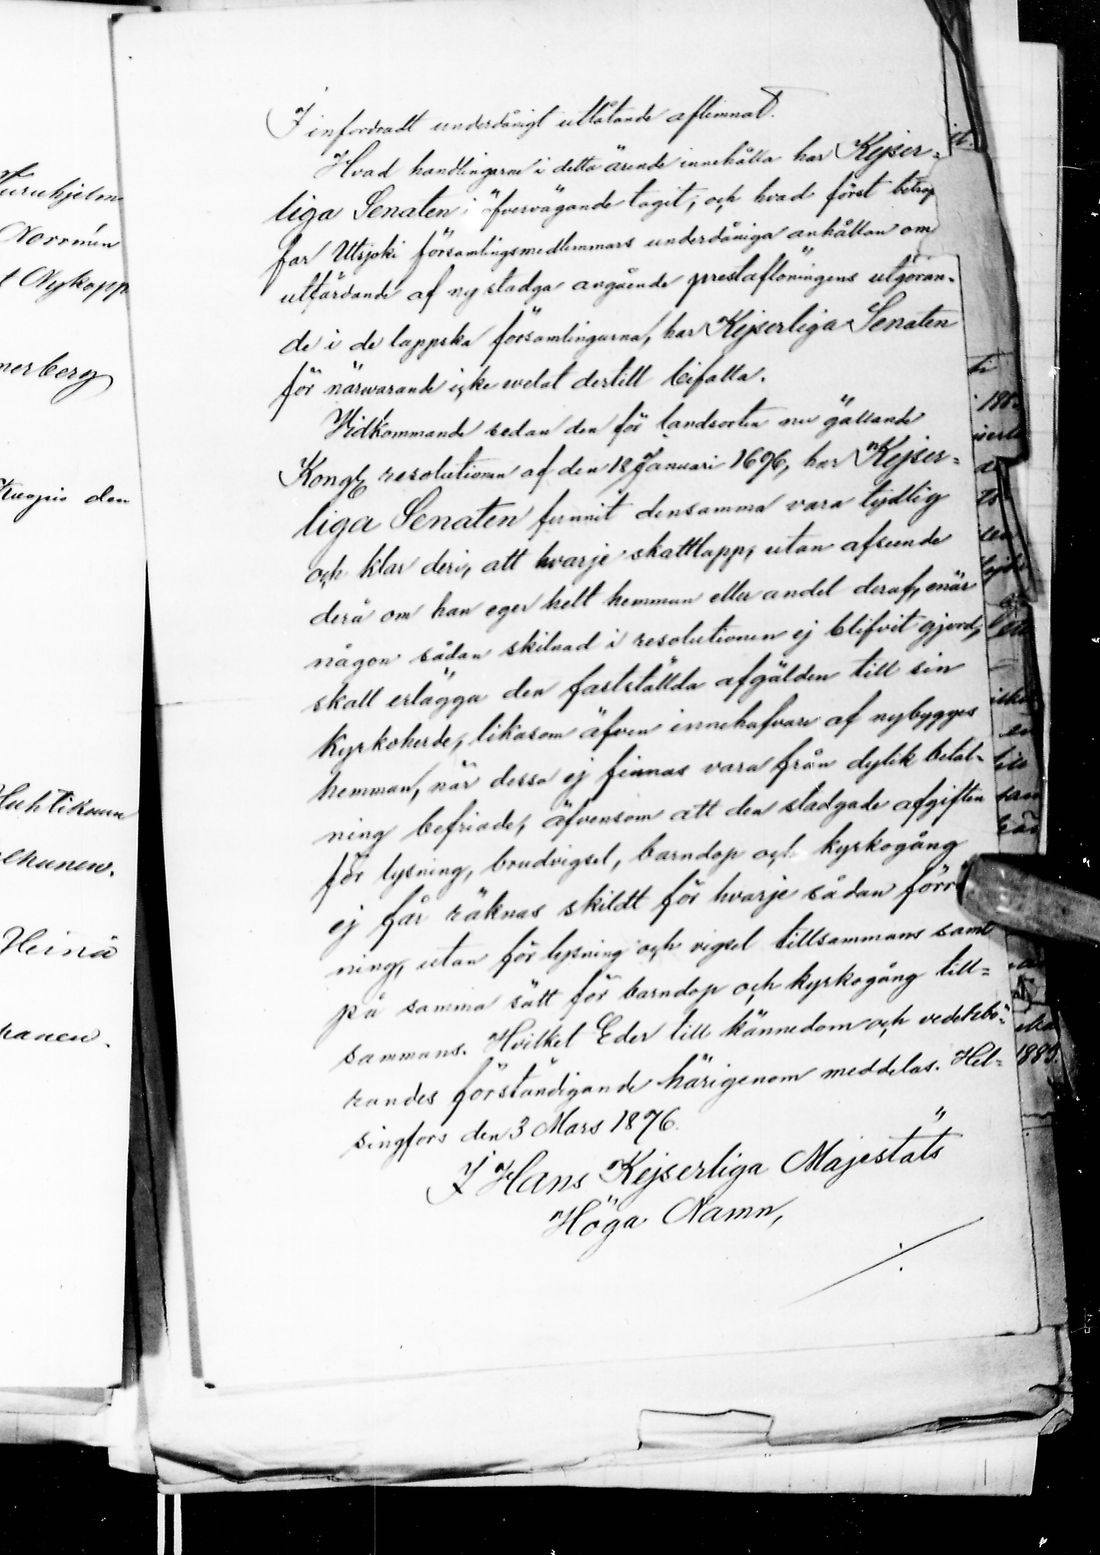 I infordradt underdånigt utlåtande aflemnat.
Hvad handlingarne i detta ärende innehålla har Kejser-
liga Senaten i öfvervägande tagit; och hvad först beträf
far Utsjoki församlingsmedlemmars underdåniga anhållan om
utfärdande af ny stadga angående prestaflöningens utgöran-
de i de lappska församlingarna, har Kejserliga Senaten
för närvarande icke velat dertill bifalla.
Vidkommande sedan den för landsorten nu gällande
Kongl. resolutionen af den 18 Januari 1696, har Kejser-
liga Senaten funnit densamma vara tydlig
och klar deri, att hvarje skattlapp, utan afseende
derå om han eger helt hemman eller andel deraf, enär
någon sådan skilnad i resolutionen ej blifvit gjord,
skall erlägga den fastställda afgälden till sin
Kyrkoherde, likasom äfven innehafvare af nybygges
hemman, när dessa ej finnas vara från dylik betal-
ning befriade, äfvensom att den stadgade afgiften
för lysning, brudvigsel, barndop och kyrkogång
ej får räknas skildt för hvarje sådan förr
ning, utan för lysning och vigsel tillsammans samt
på samma sätt för barndop och kyrkogång till-
sammans. Hvilket Eder till kännedom och vederbö-
randes förständigande härigenom meddelas. Hel-
singfors den 3 Mars 1876.
I Hans Kejserliga Majestäts
Höga Namn,
Furuhjelm
Norrmén
Nykopp
nerberg
Kuopio den
Huhtikuun
Heinä
kanen.
1885